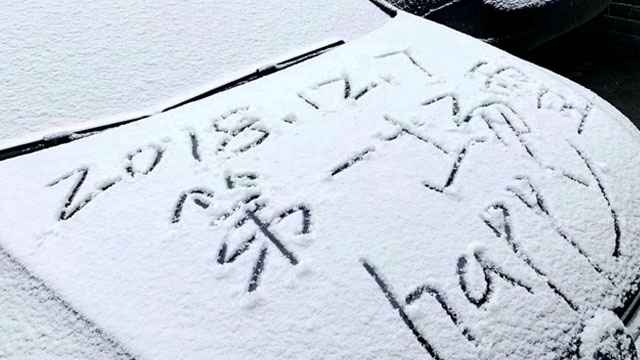 2018.12.7
第一场雪
happy